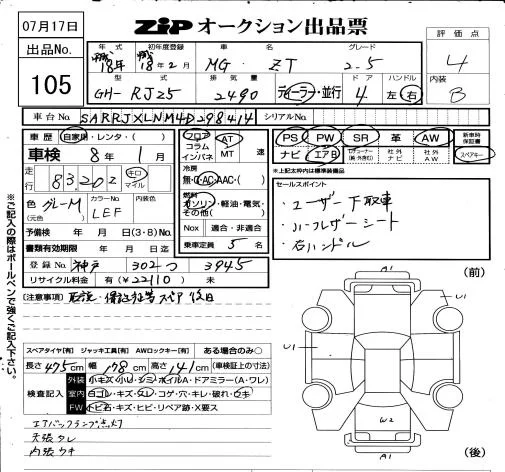 07月17日
ZIP オークション出品票
出品No.
105
評価点
4
内装
B
年式 初年度登録 車名 グレード
平成18年 平成18年2月 MG ZT 2-5
型式 排気量 ドア ハンドル
GH-RJ25 2490 ディーラー・並行 4 左 右
車台No. SARRJXLNM4D298414 シリアルNo.
車歴 自家用・レンタ・( )
車検 8年 1月
走行 83,202 キロ マイル
色(元色) グレーM カラーNo. LEF 内装色
予備検 年 月 日(3・8)No.
書類有効期限 年 月 日迄
登録No. 神戸 302 つ 3945
リサイクル料金 有(¥22110) 未
フロア コラム インパネ AT MT 速
冷房 無・AC・AAC・( )
燃料 ガソリン・軽油・電気・その他( )
Nox 適合・非適合
乗車定員 5名
PS PW SR 革 AW 新車時保証書
ナビ エアB 社外ナビ 社外AW スペアキー
※上記太枠内は標準装備品
セールスポイント
・ユーザー下取車
・ハーフレザーシート
・右ハンドル
[注意事項] 取説・保証担当スペア後日
スペアタイヤ[有] ジャッキ工具[有] AWロックキー[有] ある場合のみ○
長さ475cm 幅178cm 高さ141cm (車検証上の寸法)
検査記入
外装 小キズ・小U・シミ・ホイルA・ドアミラー(A・ワレ)
室内 白ゴレ・キズ・タレ・コゲ・穴・キレ・破れ・ウキ
FW トビ石・キズ・ヒビ・リペア跡・X要ス
エアバックランプ点灯
天張タレ
内張ウキ
A1
(前)
U1
U1
W2
A1
(後)
※ご記入の際はボールペンで強くご記入下さい。